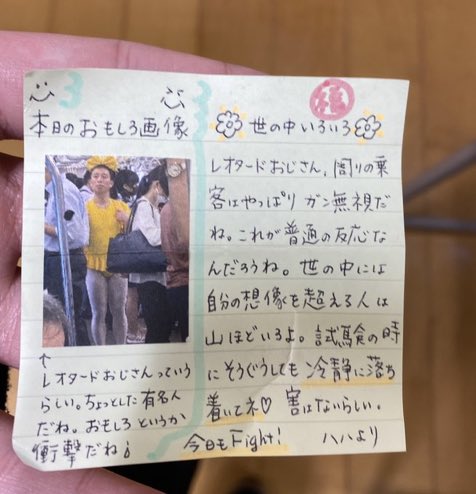 本日のおもしろ画像
↑
レオタードおじさんっていう
らしい。ちょっとした有名人
だね。おもしろというか
衝撃だね。
世の中いろいろ
レオタードおじさん、周りの乗
客はやっぱりガン無視だ
ね。これが普通の反応な
んだろうね。世の中には
自分の想像も超える人は
山ほどいるよ。試験の時
にそうぐうしても冷静に落ち
着いてネ♡ 害はないらしい。
今日もFight! ハハより